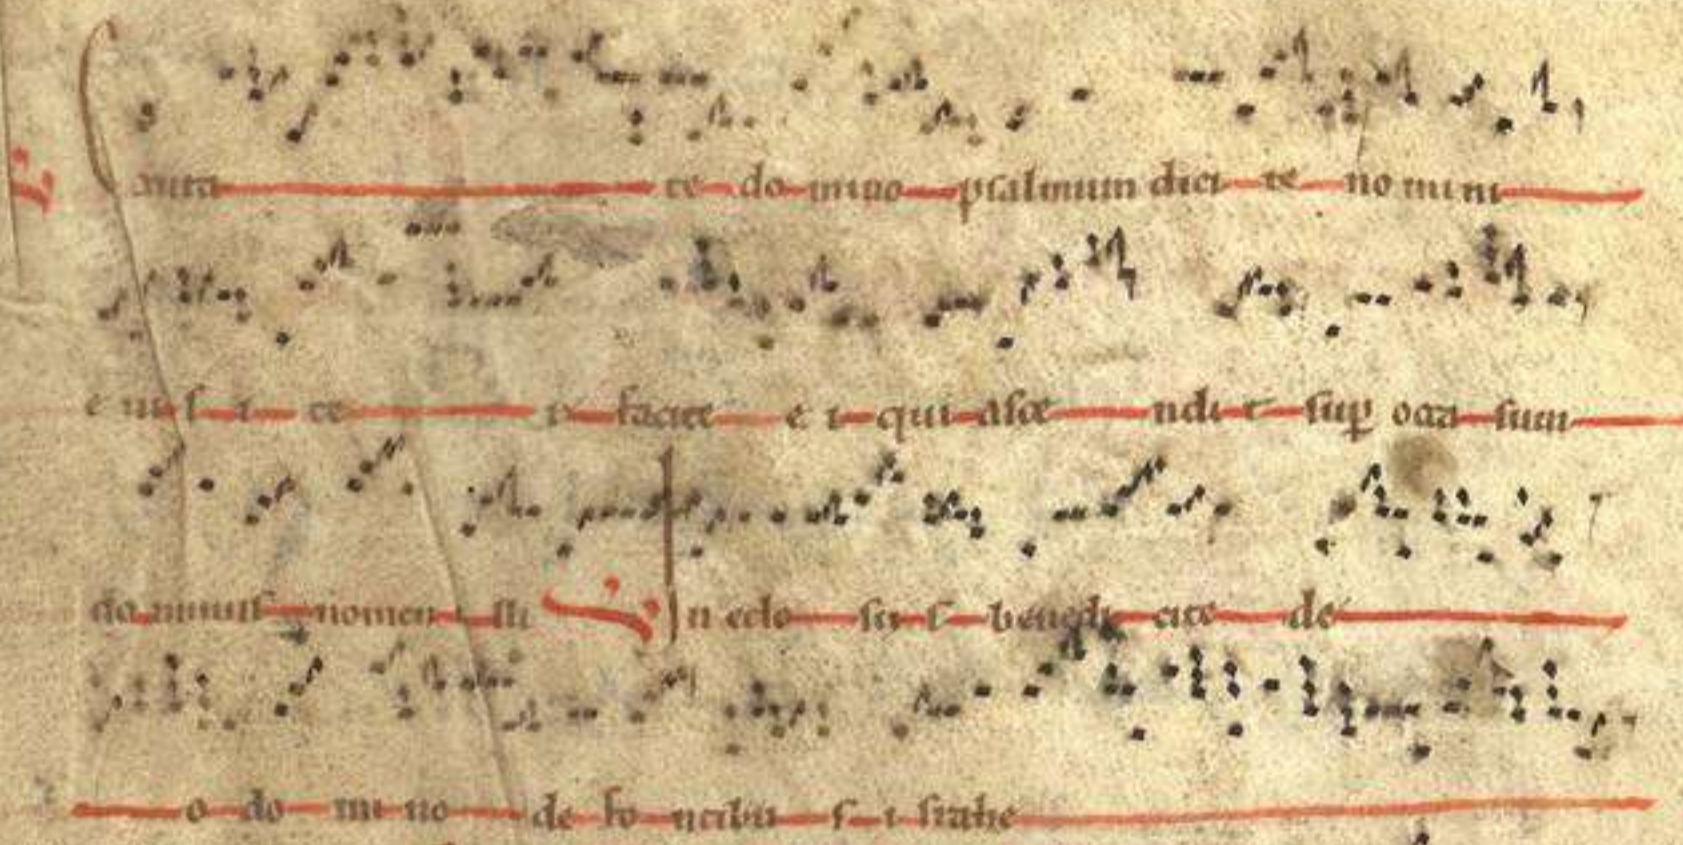 anta te do mino psalmum dici te no mini
e iu s i te r facite e i qui asce ndi t sup occa sum
do minus nomen i lli
n ecle sii s bened cite de
o do mi no de fo ntibu s i srahe